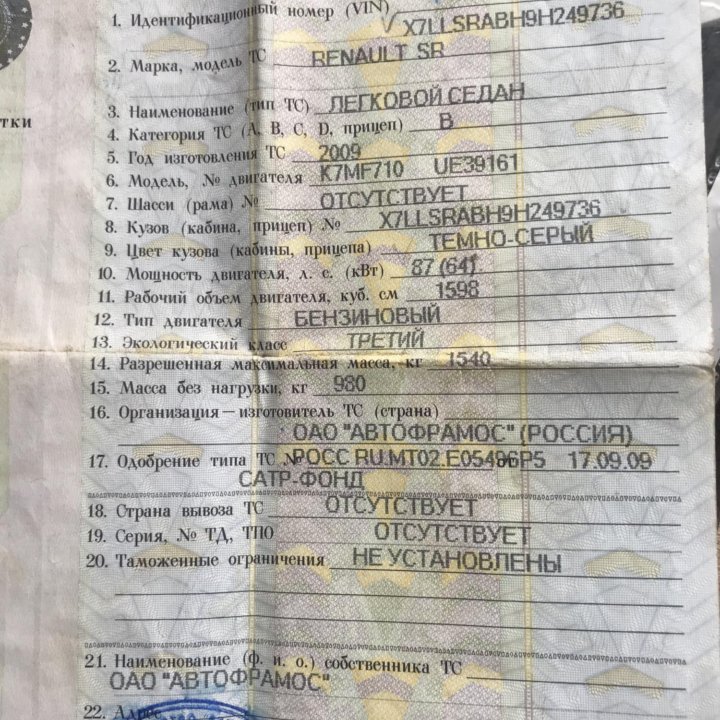 1. Идентификационный номер (VIN) X7LLSRABH9H249736
2. Марка, модель ТС RENAULT SR
тки
3. Наименование (тип ТС) ЛЕГКОВОЙ СЕДАН
4. Категория ТС (A, B, C, D, прицеп) B
5. Год изготовления ТС 2009
6. Модель, № двигателя K7MF710 UE39161
7. Шасси (рама) № ОТСУТСТВУЕТ
8. Кузов (кабина, прицеп) № X7LLSRABH9H249736
9. Цвет кузова (кабины, прицепа) ТЕМНО-СЕРЫЙ
10. Мощность двигателя, л. с. (кВт) 87 (64)
11. Рабочий объем двигателя, куб. см 1598
12. Тип двигателя БЕНЗИНОВЫЙ
13. Экологический класс ТРЕТИЙ
14. Разрешенная максимальная масса, кг 1540
15. Масса без нагрузки, кг 980
16. Организация—изготовитель ТС (страна)
ОАО "АВТОФРАМОС" (РОССИЯ)
17. Одобрение типа ТС № РОСС RU.MT02.E05496P5 17.09.09
САТР-ФОНД
18. Страна вывоза ТС ОТСУТСТВУЕТ
19. Серия, № ТД, ТПО ОТСУТСТВУЕТ
20. Таможенные ограничения НЕ УСТАНОВЛЕНЫ
21. Наименование (ф. и. о.) собственника ТС
ОАО "АВТОФРАМОС"
22. Адрес